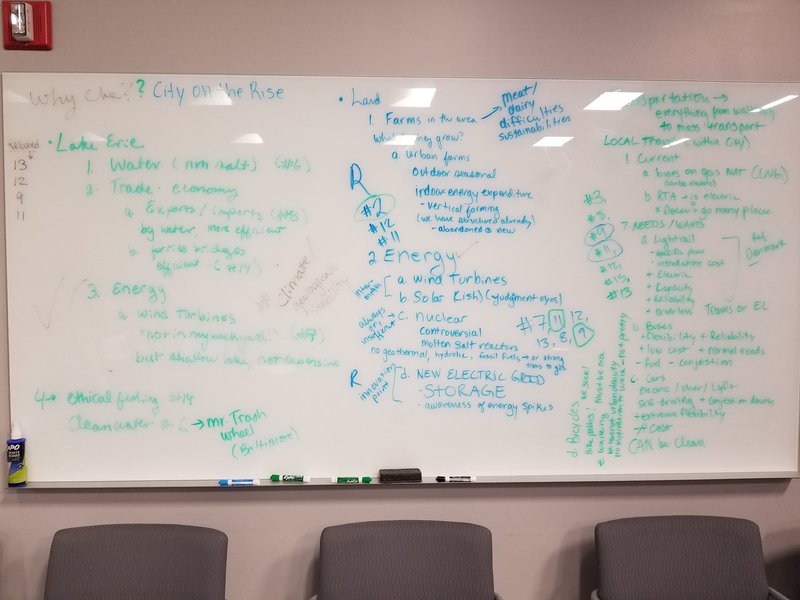 Why Cle?? City on the Rise
related
13
12
9
11
• Lake Erie
1. Water (non salt) (#6)
2. Trade - economy
a. Exports / imports (#8)
by water, more efficient
b. ferries bridges
efficient - (#14)
3. Energy
a. Wind Turbines
"not in my backyard!" (#7)
but shallow lake, not expensive
4 → ethical fishing #14
Clean water #6 → Mr. Trash
wheel
(Baltimore)
Climate /
geological
stability
• Land
1. Farms in the area
meat /
dairy
difficulties
sustainabilities
What they grow?
a. Urban farms
outdoor seasonal
indoor energy expenditure
- vertical farming
(we have structures already)
- abandoned is now
R
#2
#12
#11
2. Energy
a. Wind Turbines
b. Solar (ish) (judgment eyes)
c. Nuclear
controversial
molten salt reactors
no geothermal, hydrolic, fossil fuels → or strong
trans to gas
always
on /
#7, 11, 12,
13, 8, 9
R
innovation
point
d. NEW ELECTRIC GRID
- STORAGE
- awareness of energy spikes
Transportation →
everything from walking
to mass transport
LOCAL Travel (within City)
1. Current
a. buses on gas NAT (CNG)
b. RTA → is electric
x Doesn't go many places
#3,
#8,
#9
#11,
#12,
#15,
#13
? NEEDS / WANTS
a. Lightrail
- specific
- installation cost
+ Electric
+ Capacity
+ Reliability
+ Driverless
Ref
Denmark
Trams or EL
b. Buses
+ flexibility + Reliability
+ low cost + normal roads
- fuel - conjestion
c. Cars
Electric / Uber / Lyft
Self-Driving + Conjestion down
+ extreme flexibility
- # Cost
CAN be Clean
d. Bicycles
Bike paths!
EXPO